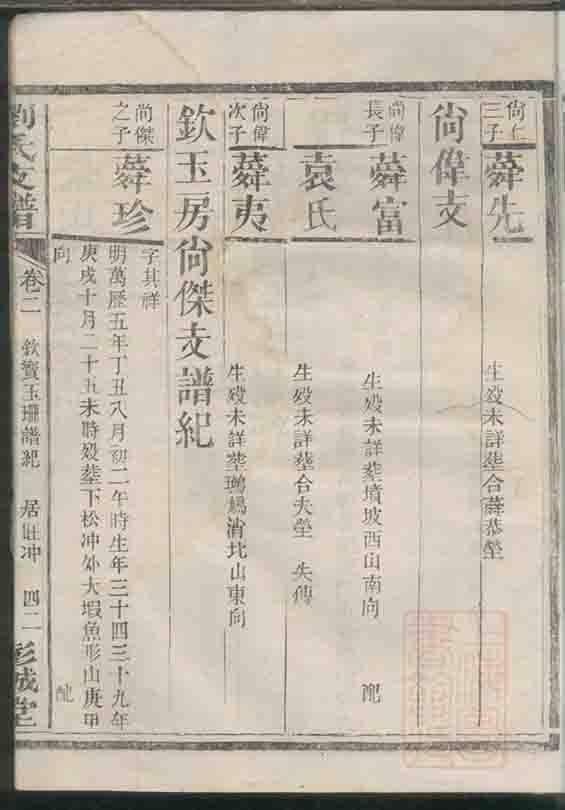 尙仁
三子
薭先
生殁未詳塟合薭恭塋
尙偉支
尙偉
長子
薭富
生殁未詳塟墳坡西山南向 配
袁氏
生殁未詳塟合夫塋 失傳
尙偉
次子
薭夷
生殁未詳塟
北山東向
欽玉房尙傑支譜紀
尙傑
之子
薭珍
字其祥
明萬歷五年丁丑八月初二午時生年三十四三十九年
庚戌十月二十五未時殁塟下松冲外大塅魚形山庚甲
向 配
劉氏支譜
卷二
欽寶玉珊譜紀
居
冲
四二
彭城堂